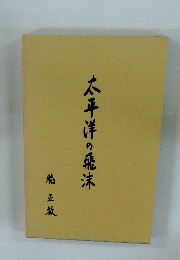 太平洋の飛沫
正敏